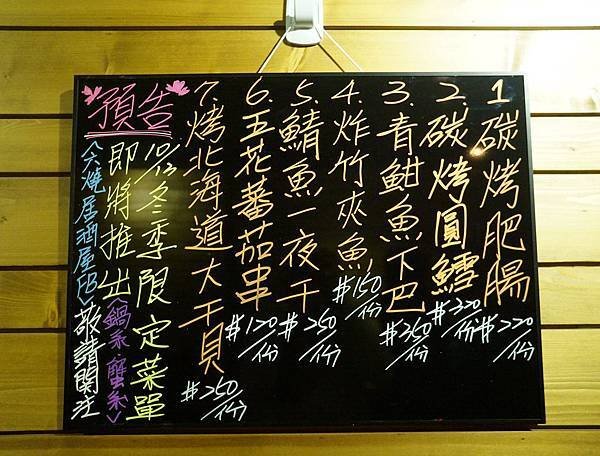 1.碳烤肥腸 #220/份
2.碳烤圓鱈 #320/份
3.青魽魚下巴 #350/份
4.炸竹夾魚 #150/份
5.鯖魚一夜干 #250/份
6.五花蕃茄串 #120/份
7.烤北海道大干貝 #250/份
預告
10/13冬季限定菜單
即將推出〈鍋系.蟹系〉
〈六燒居酒屋FB〉敬請關注